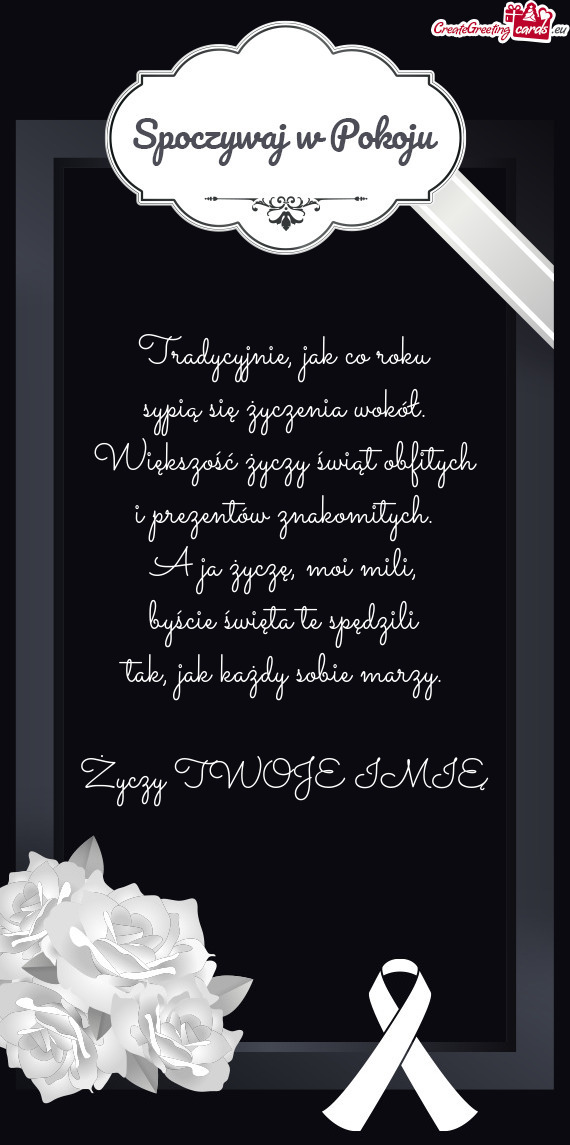 CreateGreetingcards.eu
Spoczywaj w Pokoju
Tradycyjnie, jak co roku
sypią się życzenia wokół.
Większość życzy świąt obfitych
i prezentów znakomitych.
A ja życzę, moi mili,
byście święta te spędzili
tak, jak każdy sobie marzy.
Życzy TWOJE IMIĘ